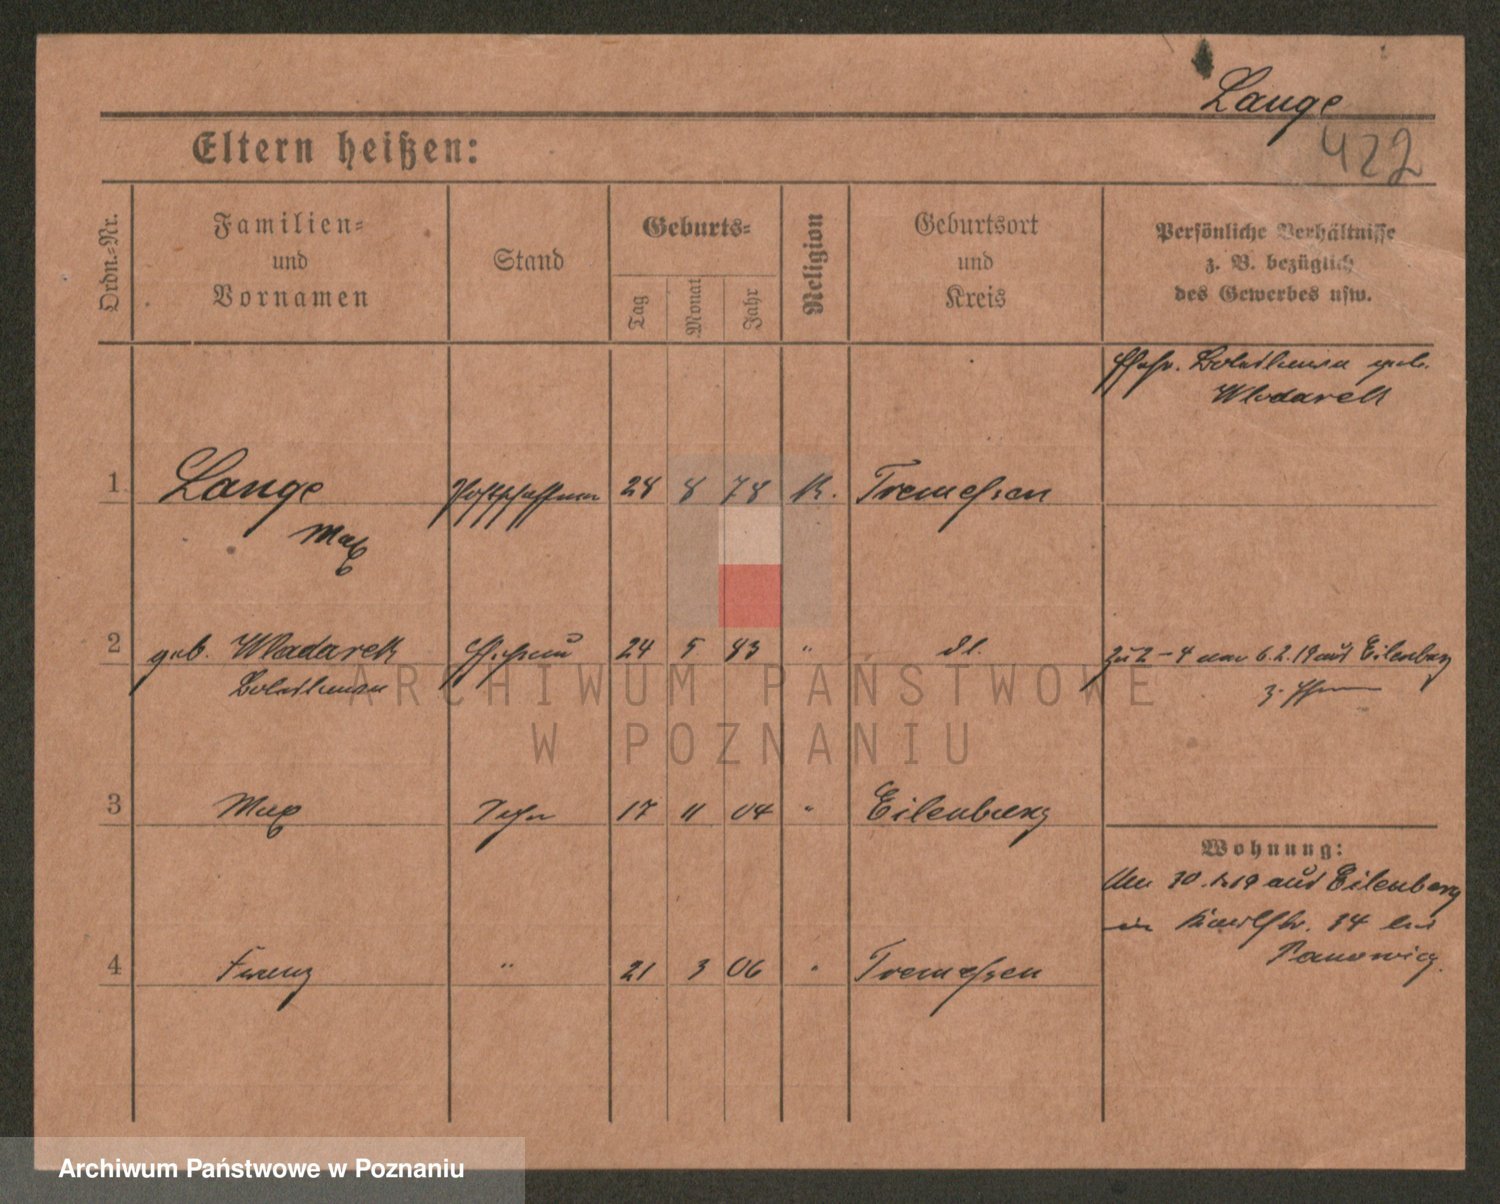 Lange
422
Eltern heißen:
Ordn.-Nr.
Familien-
und
Vornamen
Stand
Geburts-
Tag
Monat
Jahr
Religion
Geburtsort
und
Kreis
Persönliche Verhältnisse
z. B. bezüglich
des Gewerbes usw.
geb.
Wlodarek
1 Lange Postschaffner 28 8 78 K. Tremessen
Max
2 geb. Wlodarek Ehefrau 24 5 83 " dt.
zu 2-4 am 6.2.19 aus Eilenburg
3 Max Sohn 17 11 04 " Eilenburg
Wohnung:
Am 30. 1.19 aus Eilenburg
in 34 bei
4 Franz " 21 3 06 " Tremessen
ARCHIWUM PAŃSTWOWE
W POZNANIU
Archiwum Państwowe w Poznaniu